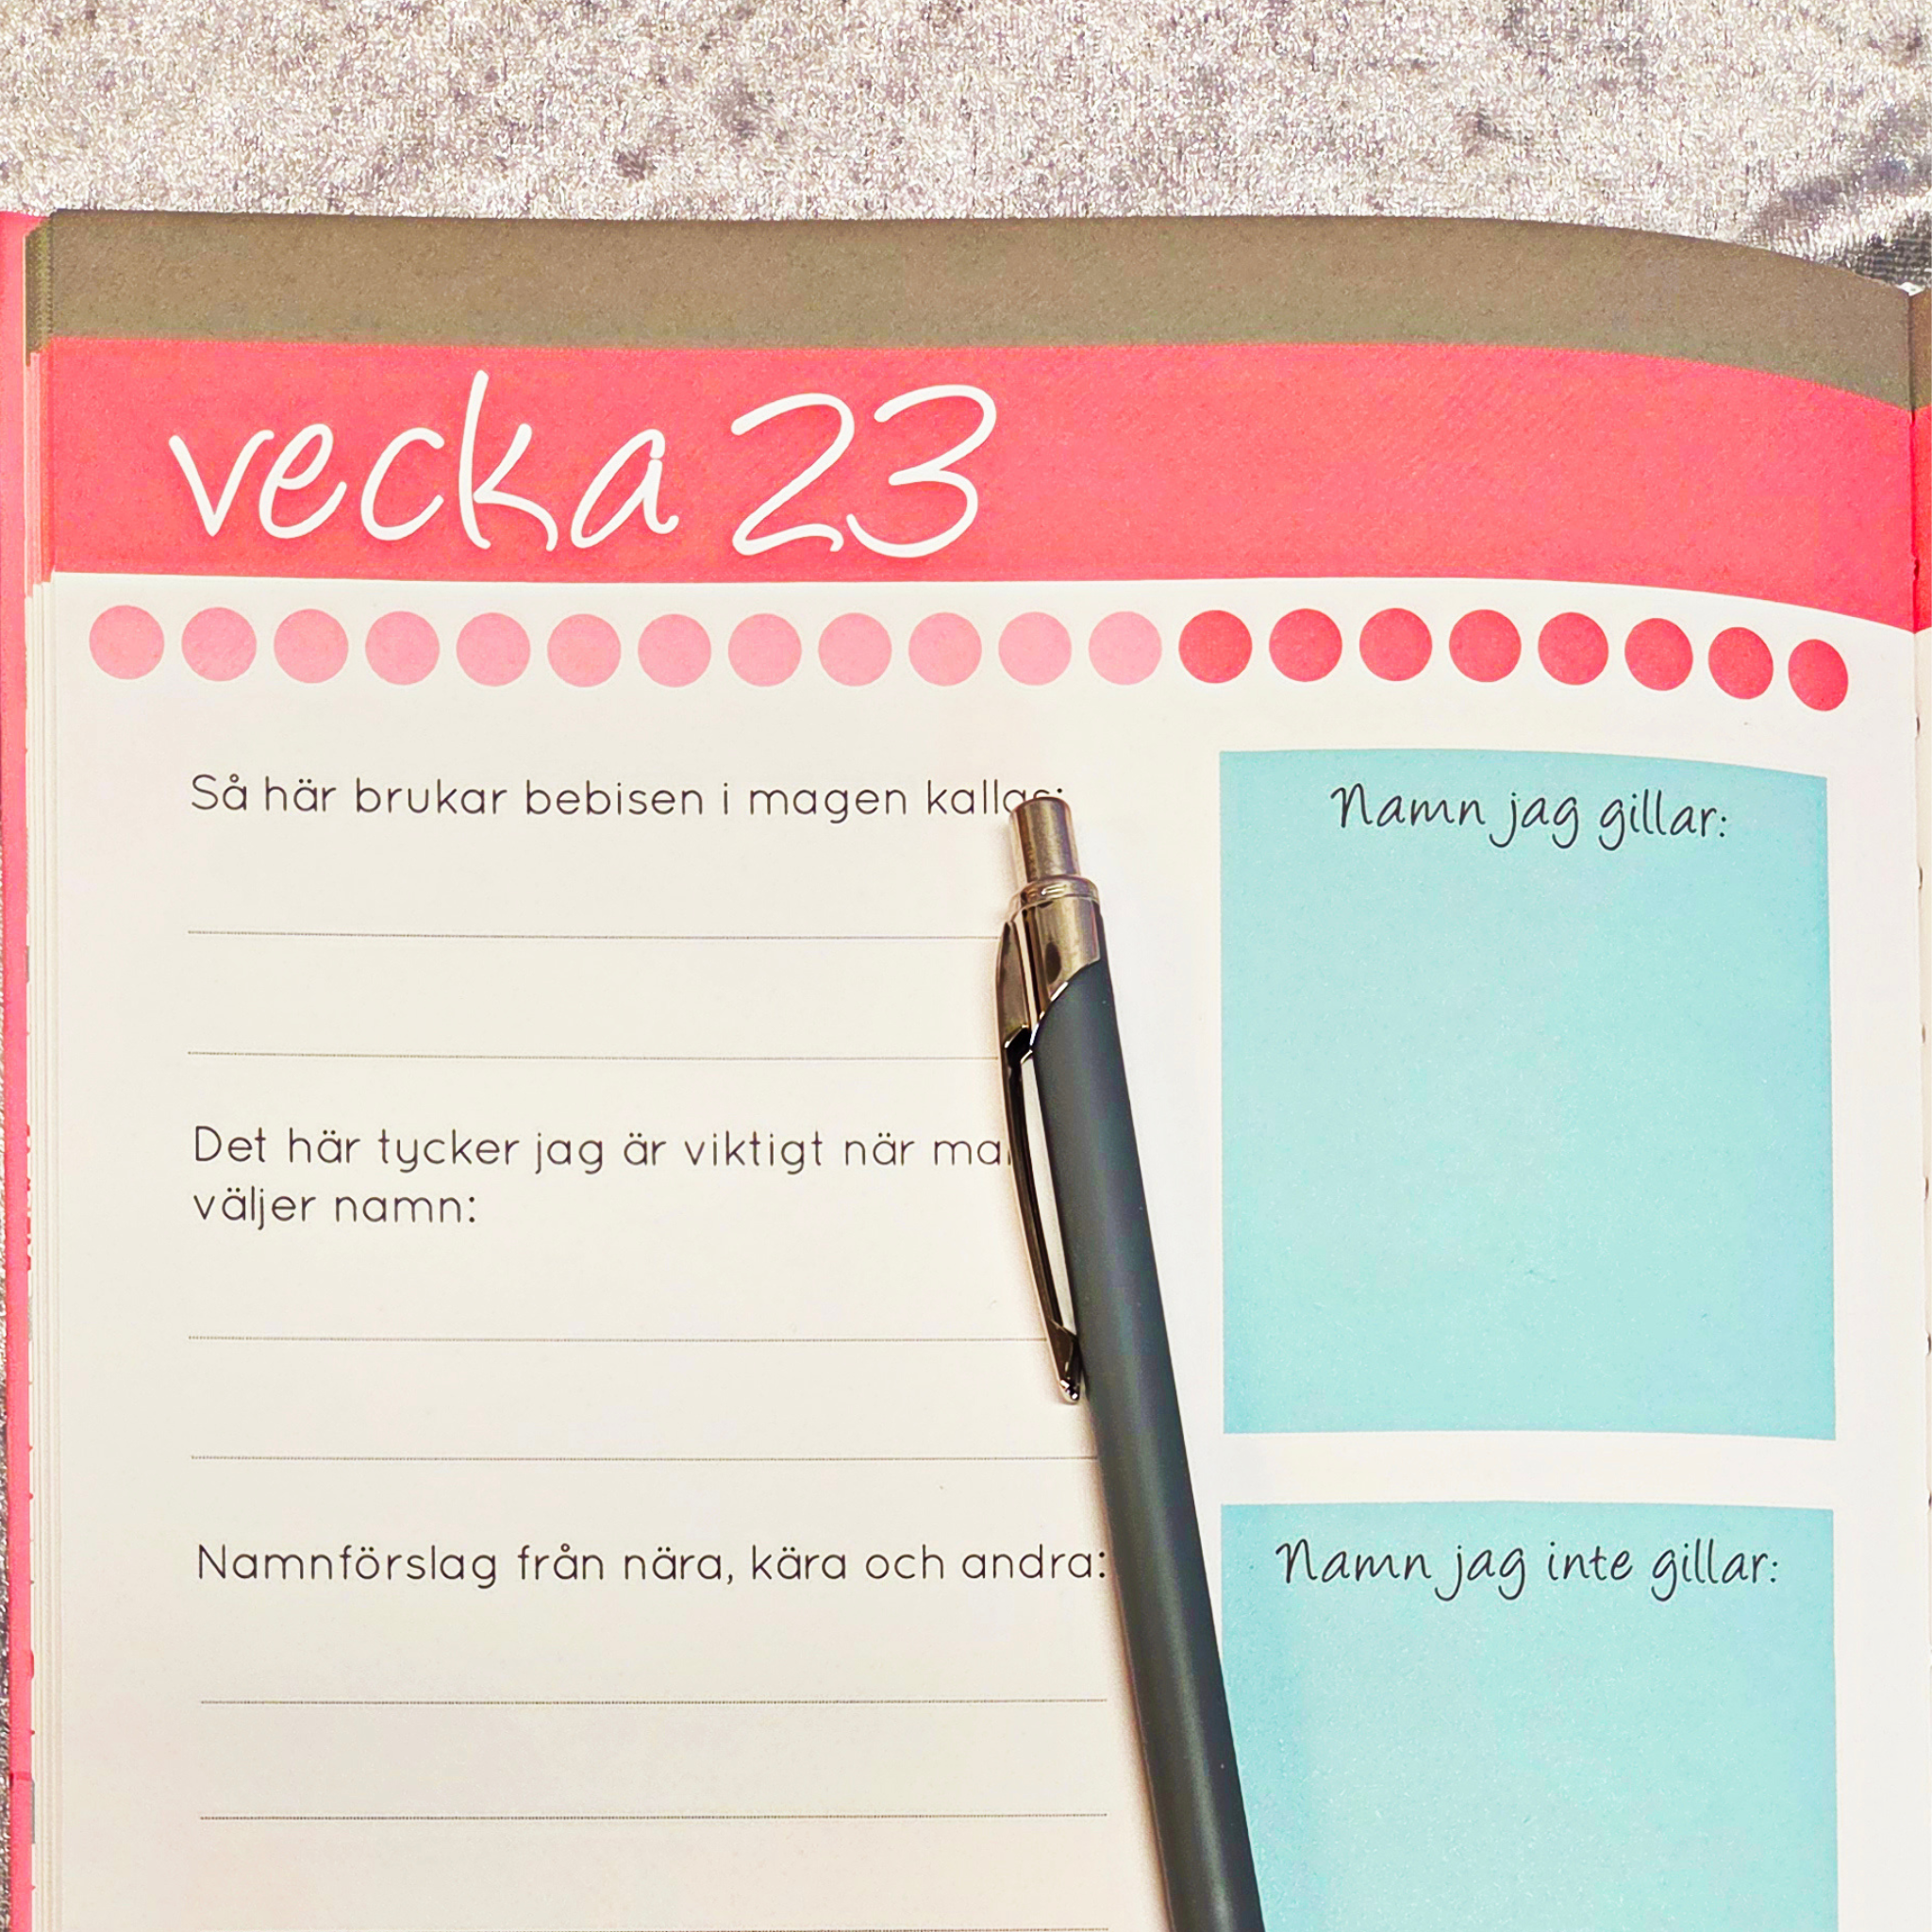 vecka 23
Så här brukar bebisen i magen kallas:
Det här tycker jag är viktigt när
väljer namn:
Namnförslag från nära, kära och andra:
Namn jag gillar:
Namn jag inte gillar: